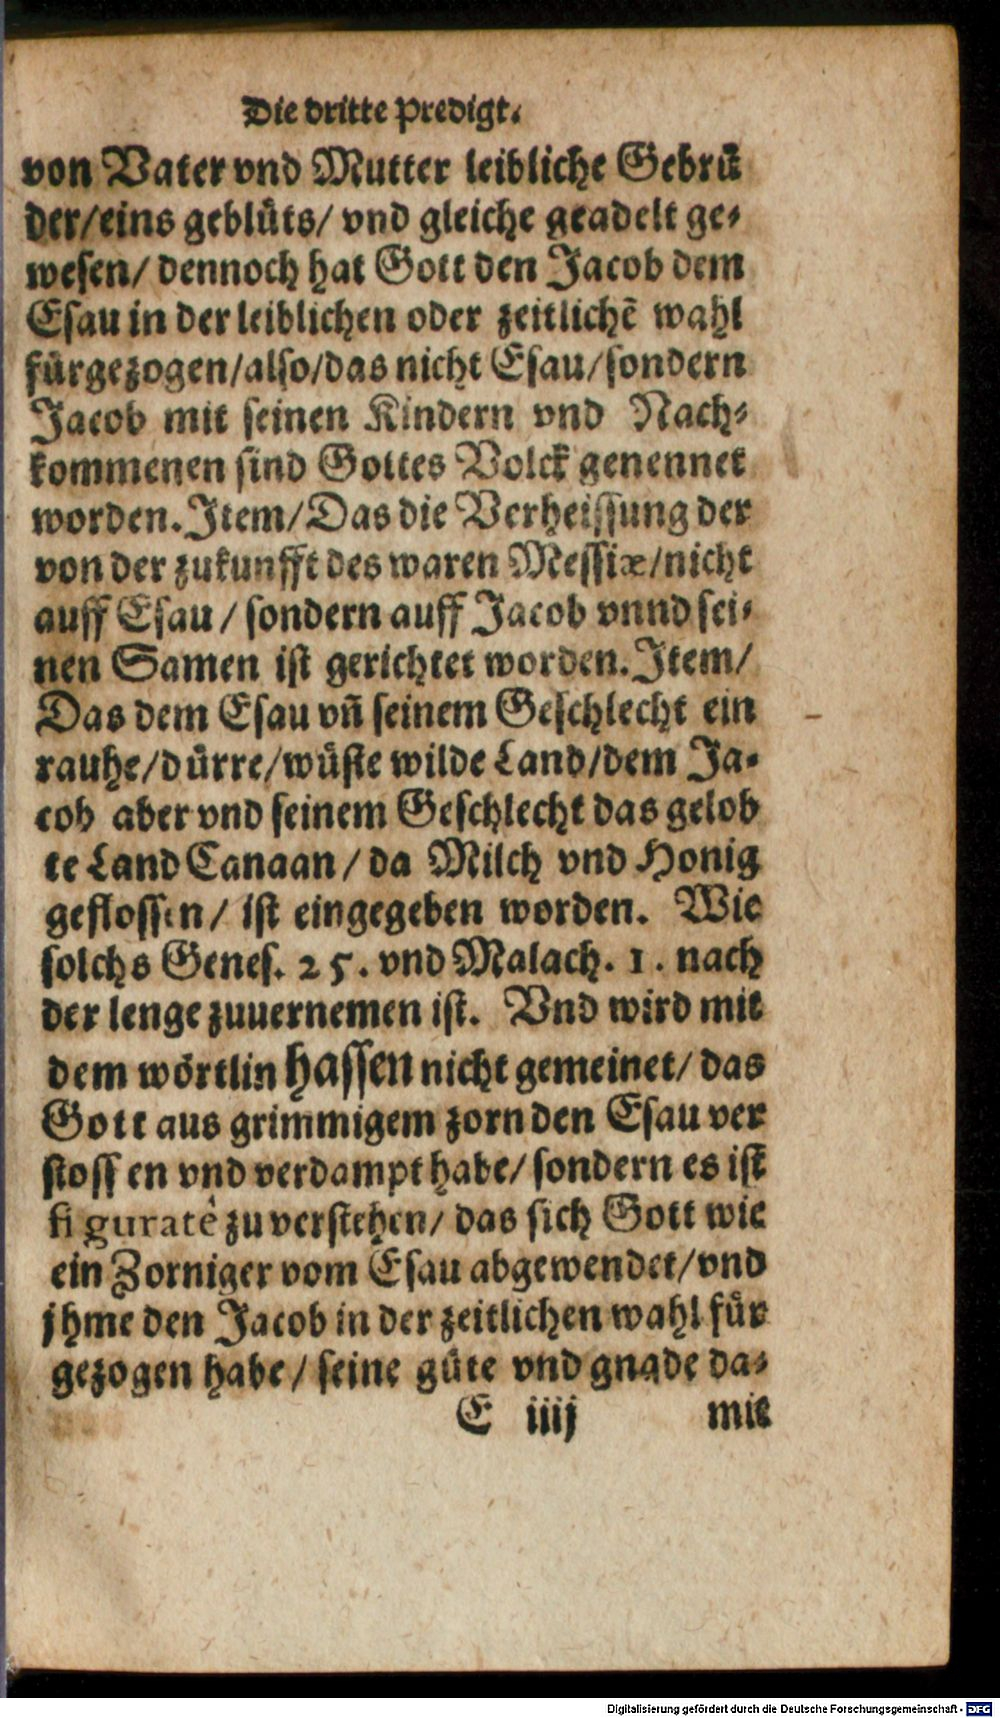 Die dritte Predigt.
von Vater vnd Mutter leibliche Gebrů
der/eins geblůts/ vnd gleiche geadelt ge⸗
wesen/ dennoch hat Gott den Jacob dem
Esau in der leiblichen oder zeitlichẽ wahl
fůrgezogen/also/das nicht Esau/sondern
Jacob mit seinen Kindern vnd Nach⸗
kommenen sind Gottes Volck genennet
worden. Item/Das die Verheissung der
von der zukunfft des waren Messiæ/nicht
auff Esau / sondern auff Jacob vnnd sei⸗
nen Samen ist gerichtet worden. Item/
Das dem Esau vñ seinem Geschlecht ein
rauhe/důrre/wůste wilde Land/dem Ja⸗
cob aber vnd seinem Geschlecht das gelob
te Land Canaan / da Milch vnd Honig
geflossen/ ist eingegeben worden. Wie
solchs Genes. 25. vnd Malach. 1. nach
der lenge zuuernemen ist. Vnd wird mit
dem wörtlin hassen nicht gemeinet/ das
Gott aus grimmigem zorn den Esau ver
stossen vnd verdampt habe/ sondern es ist
figuratè zu verstehen/ das sich Gott wie
ein Zorniger vom Esau abgewendet/vnd
jhme den Jacob in der zeitlichen wahl fůr
gezogen habe/ seine gůte vnd gnade da⸗
E iiij mit
Digitalisierung gefördert durch die Deutsche Forschungsgemeinschaft - DFG